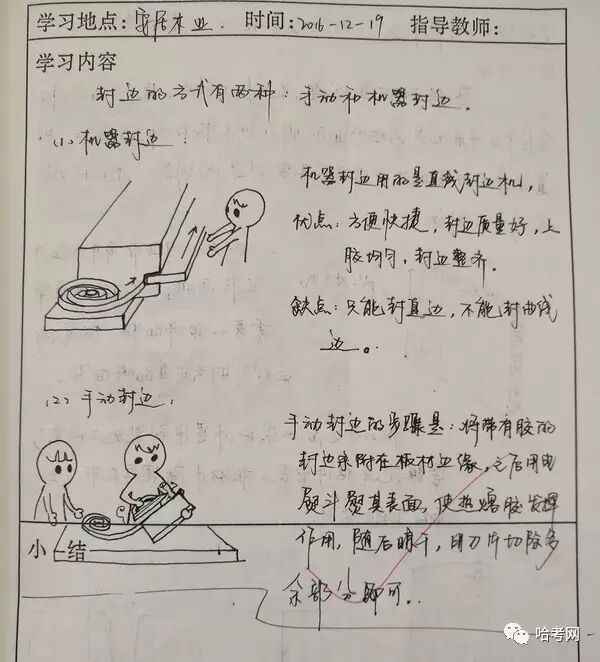 学习地点：安居木业. 时间：2016-12-19 指导教师：
学习内容
封边的方式有两种：手动和机器封边.
(1)机器封边：
机器封边用的是直线封边机,
优点：方便快捷，封边质量好，上
胶均匀，封边整齐.
缺点：只能封直边，不能封曲线
边。
(2)手动封边：
手动封边的步骤是：将带有胶的
封边条附在板材边缘，之后用电
熨斗熨其表面，使热熔胶发挥
作用，随后晾干，用刀片切除多
余部分即可.
小 结
哈考网